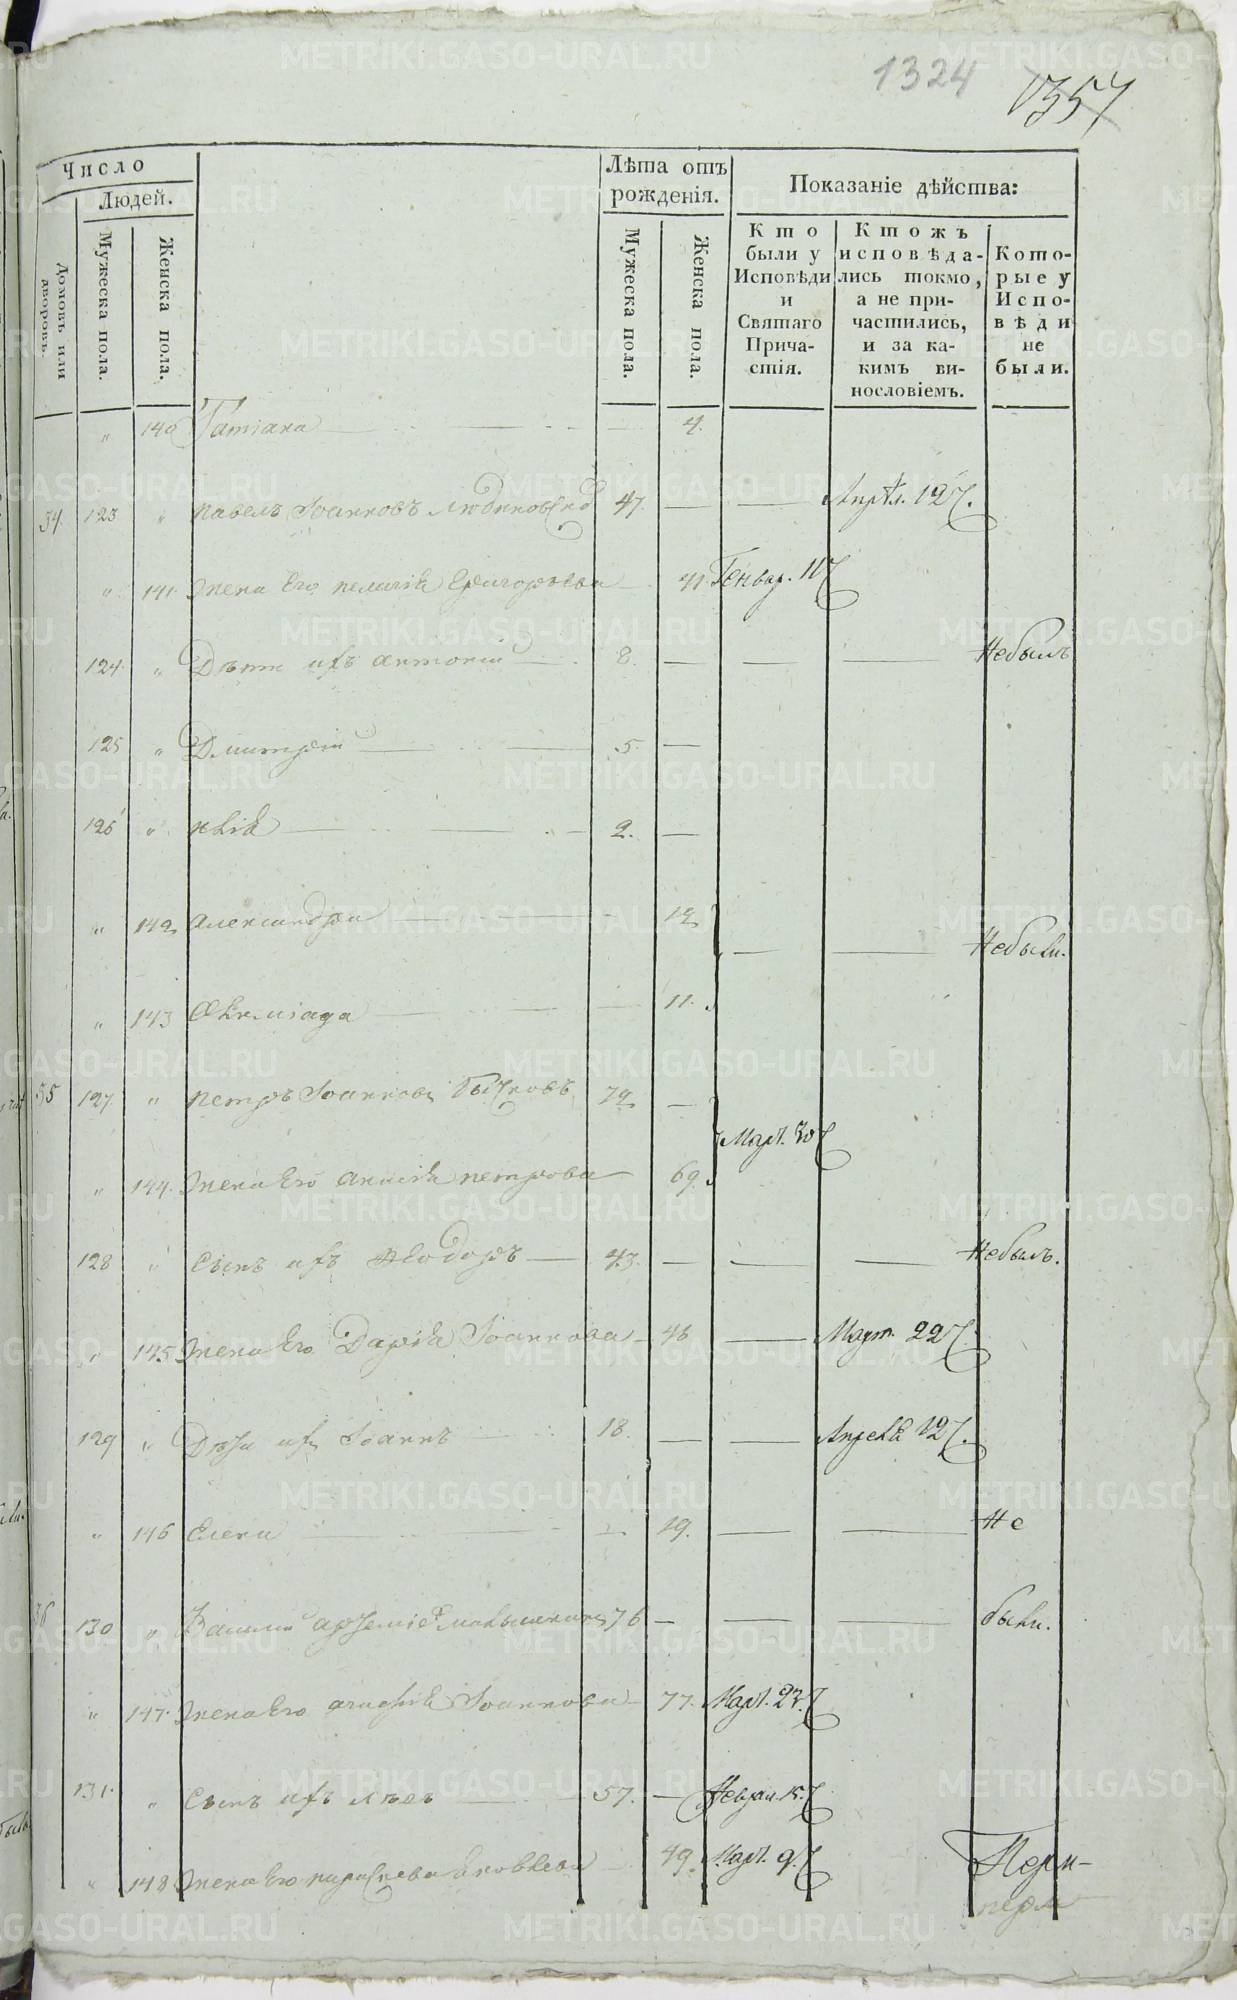 1324
1357
Число
Людей.
Домовъ или дворовъ.
Мужеска пола.
Женска пола.
Лѣта отъ рожденія.
Мужеска пола.
Женска пола.
Показаніе дѣйства:
Кто были у Исповѣди и Святаго Причастія.
Ктожъ исповѣдались токмо, а не причастились, и за какимъ винословіемъ.
Которые у Исповѣди не были.
" 140 Татіана 4.
34. 123 " Павелъ Іоанновъ 47. Апрѣл. 12
" 141. Жена Его Пелагія Григорьева 41 Генвар. 11
124. " Дѣти ихъ Антоній 8. Небылъ
125 " Димитрій 5.
126 " 2.
" 142 Александра 12
Небыли.
" 143 11.
35 127 " Петръ Іоанновъ Бычковъ 72
Март. 30
" 144. Жена Его Анисія Петрова 69
128 " Сынъ ихъ Ѳеодоръ 43. Небылъ.
" 145 Жена Его Дарія Іоаннова 46 Март. 22
129 " Дѣти ихъ Іоаннъ 18. Апреля 12
" 146 Елена 19. Не
36 130 " Василій 76 были.
" 147. Жена Его Іоаннова 77. Март. 23.
131. " Сынъ ихъ 57. Феврал. 15.
" 148 Жена Его Параскева Яковлева 49. Март. 9.
METRIKI.GASO-URAL.RU